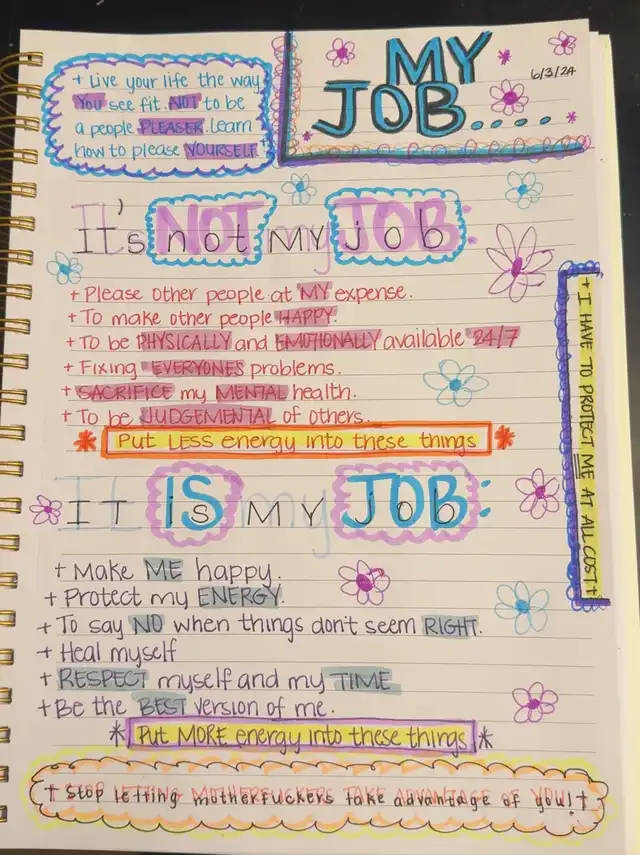 + Live your life the way
You see fit. NOT to be
a people PLEASER. Learn
how to please YOURSELF. +
MY
JOB.....
6/3/24
It's NOT my JOB:
It's not MY job
+ Please other people at MY expense.
+ To make other people HAPPY.
+ To be PHYSICALLY and EMOTIONALLY available 24/7
+ Fixing EVERYONES problems.
+ SACRIFICE my MENTAL health.
+ To be JUDGEMENTAL of others.
* Put LESS energy into these things *
+ I HAVE TO PROTECT ME AT ALL COST +
It IS my JOB:
IT is MY job
+ Make ME happy.
+ Protect my ENERGY.
+ To say NO when things don't seem RIGHT.
+ Heal myself
+ RESPECT myself and my TIME
+ Be the BEST version of me.
* Put MORE energy into these things *
+ Stop letting motherfuckers take advantage of you! +